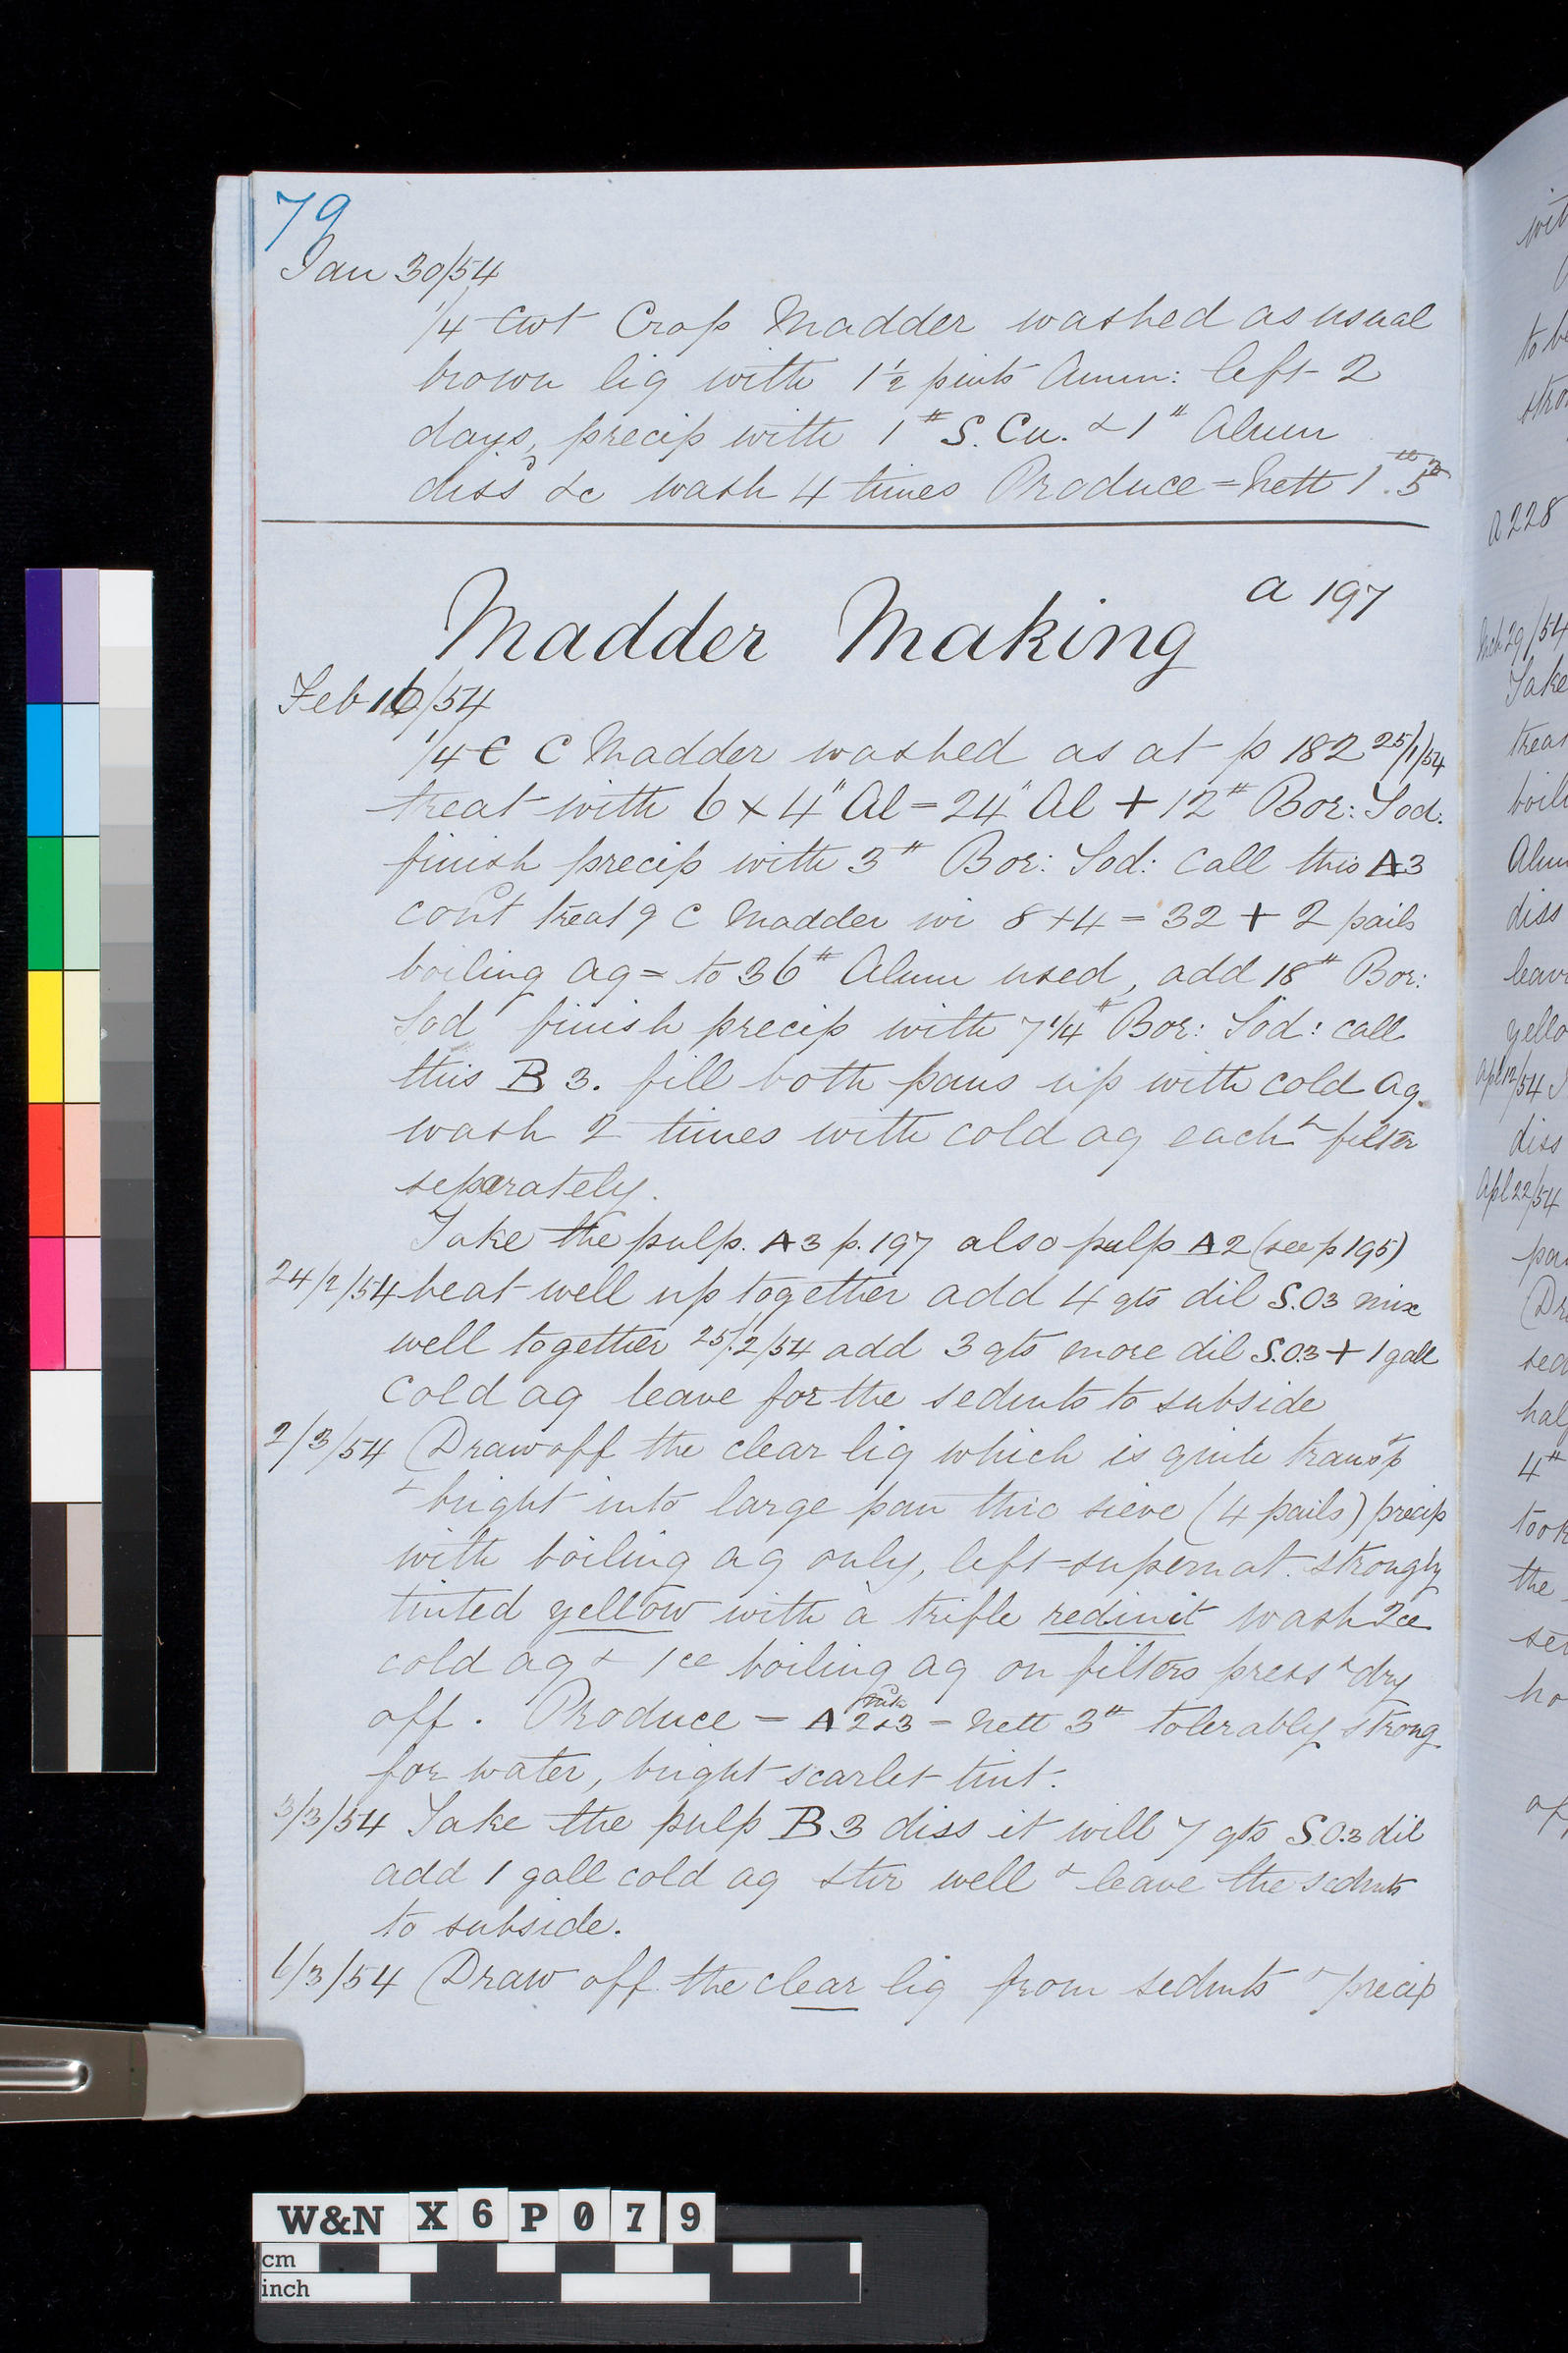 79
Jan 30/54
1/4 Cwt Crop Madder washed as usual
brown liq with 1 1/2 pints Amm: left 2
days, precip with 1# S. Cu. & 1# Alum
dissd &c wash 4 times Produce = Nett 1.5
Madder Making a 197
Feb 16/54
1/4 C C Madder washed as at p 182 25/1/54
treat with 6 x 4" Al = 24" Al + 12# Bor: Sod.
finish precip with 3# Bor: Sod: call this A3
cont treatg C Madder wi 8 + 4 = 32 + 2 pails
boiling aq = to 36# Alum used, add 18# Bor:
Sod finish precip with 7 1/4# Bor: Sod: call
this B 3. fill both pans up with cold aq.
wash 2 times with cold aq each & filter
seperately.
Take the pulp. A3 p. 197 also pulp A2 (see p 195)
24/2/54 beat well up together add 4 qts dil S.O3 mix
well together 25/2/54 add 3 qts more dil S.O3 + 1 gall
cold aq leave for the sedmts to subside
2/3/54 Draw off the clear liq which is quite transpt
& bright into large pan thro sieve (4 pails) precip
with boiling aq only, left supernat. strongly
tinted yellow with a trifle red in it wash 2ce
cold aq & 1ce boiling aq on filters press & dry
off. Produce = A 2&3 = Nett 3# tolerably strong
for water, bright scarlet tint.
3/3/54 Take the pulp B 3 diss it will 7 qts S.O.3 dil
add 1 gall cold aq stir well & leave the sedmts
to subside.
6/3/54 Draw off the clear liq from sedmts & precip
wit
to be
stro
A 228
Mch 29/54
Take
treat
boili
Alum
diss
leave
yello
Apl 12/54
diss
Apl 22/54
pa
sed
hal
4#
took
the
set
no
W&N X 6 P 0 7 9
cm
inch